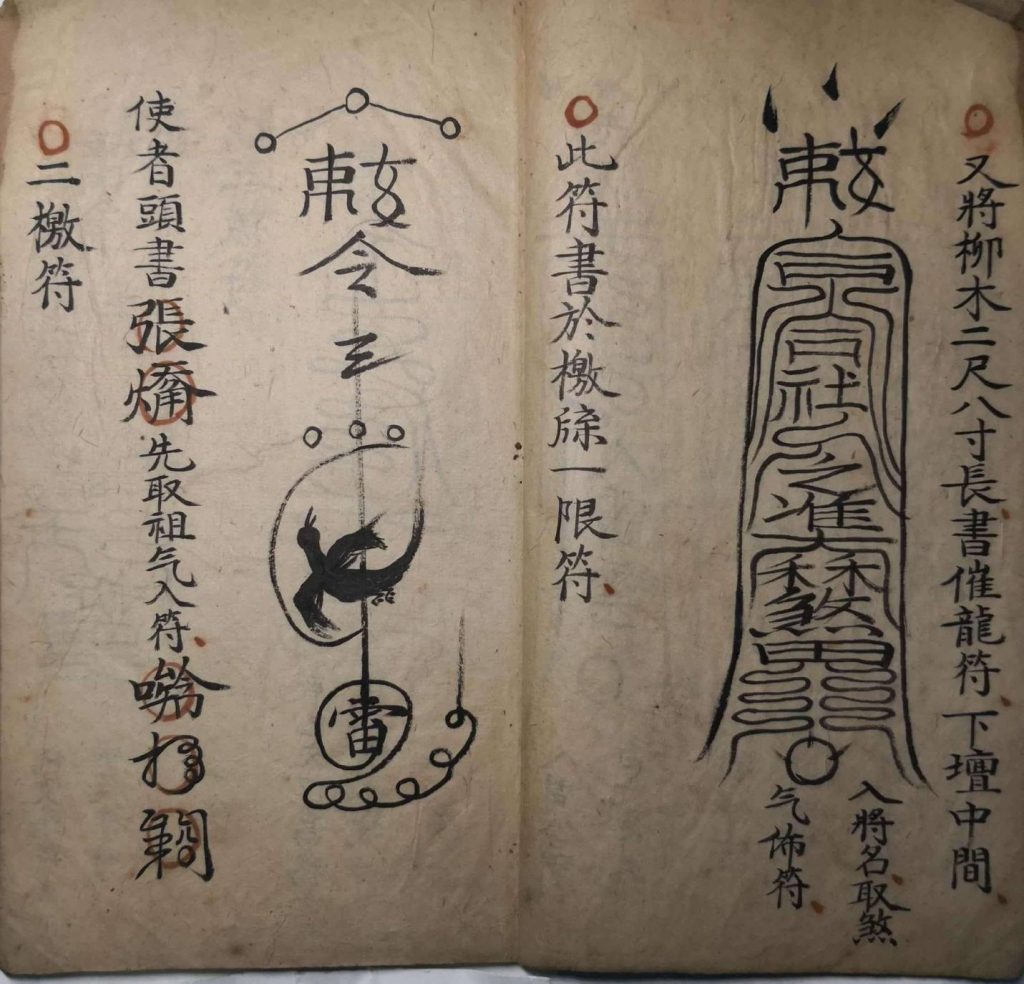 又將柳木二尺八寸長書催龍符下壇中間
敕
社
進
煞
入將名取煞
气佈符
此符書於檄一限符
敕令
三
雷
使者頭書張先取祖气入符
二檄符